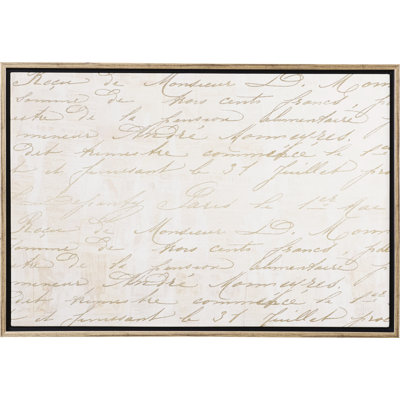 Reçu de Monsieur D. Mom
Somme de trois cents francs, p
de la pension alimentaire
mineur André Monuyres.
Dit trimestre commencé le 1er
et finissant le 31 Juillet pro
Paris le 1er Mai
Reçue de Monsieur D. Mom
Somme de trois cents francs, p
de la pension alimentaire
mineur André
Dit trimestre commencé le 1er
et finissant le 31 Juillet pro